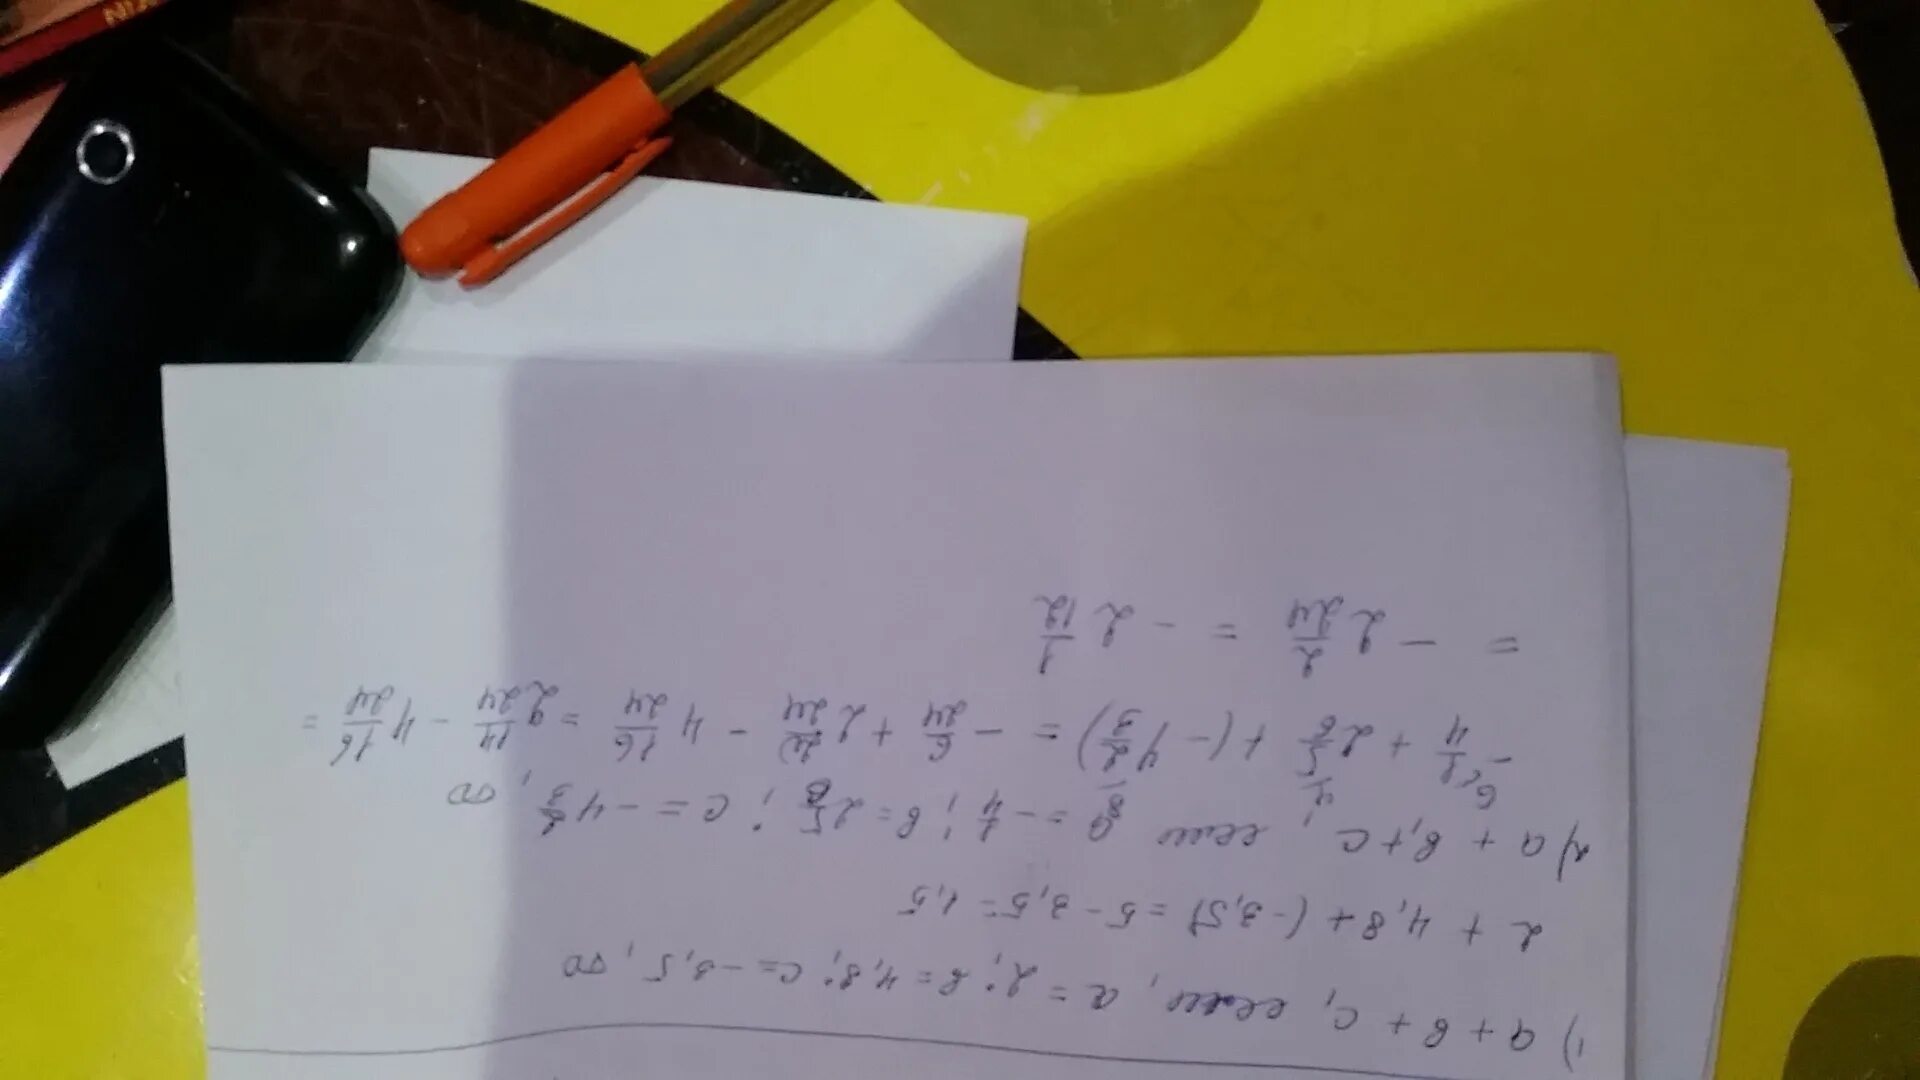 1) a + в + c, если, a = 2; в = 4,8; c = -3,5, то
2 + 4,8 + (-3,5) = 5 - 3,5 = 1,5
2) a + в + c, если a = -1/4; в = 2 5/8; c = -4 2/3, то
-1/4 + 2 5/8 + (-4 2/3) = -6/24 + 2 - 4 16/24 = 2 14/24 - 4 16/24 =
= -2 2/24 = -2 1/12